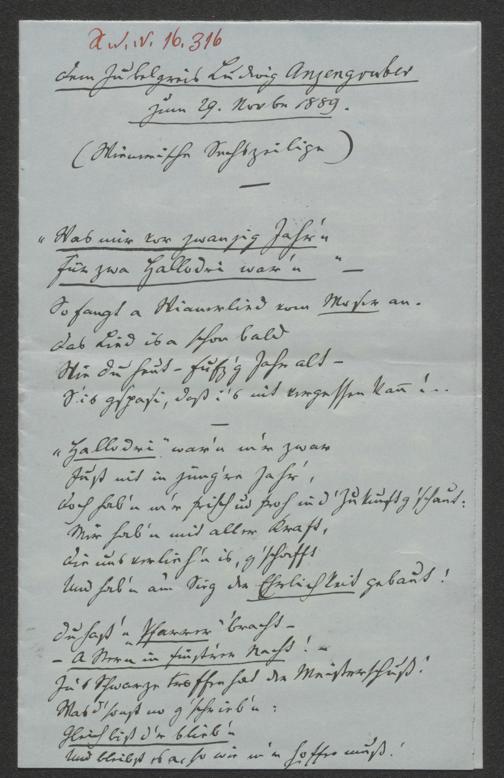 I.N. 16.316
Dem Jubelgreis Ludwig Anzengruber
zum 29. Novbr 1889.
(Wienerische Sechszeilige)
—
„Was mir vor zwanzig Jahr'n
Für zwa Hallodri war'n" —
So fangt a Weanerlied vom Moser an.
Das Lied is a schon bald
Wie du heut – fufz'g Jahr alt –
S'is g'spaßi, daß i's nit vergessen kann!..
—
„Hallodri" war'n m'r zwar
Just nit in jüng're Jahr',
Doch hab'n m'r frisch und froh in d' Zukunft g'schaut:
Mir hab'n mit aller Kraft,
Die uns verlieh'n is, g'schafft
Und hab'n am Sieg der Ehrlichkeit gebaut!
Du hast'n „Pfarrer" bracht –
– A Stern in finst'rer Nacht! –
In's Schwarze troffen hat der Meisterschuß!
Was d' sonst no g'schrieb'n:
Gleich bist d'r blieb'n
Und bleibst es a so wie m'r hoffen muß!